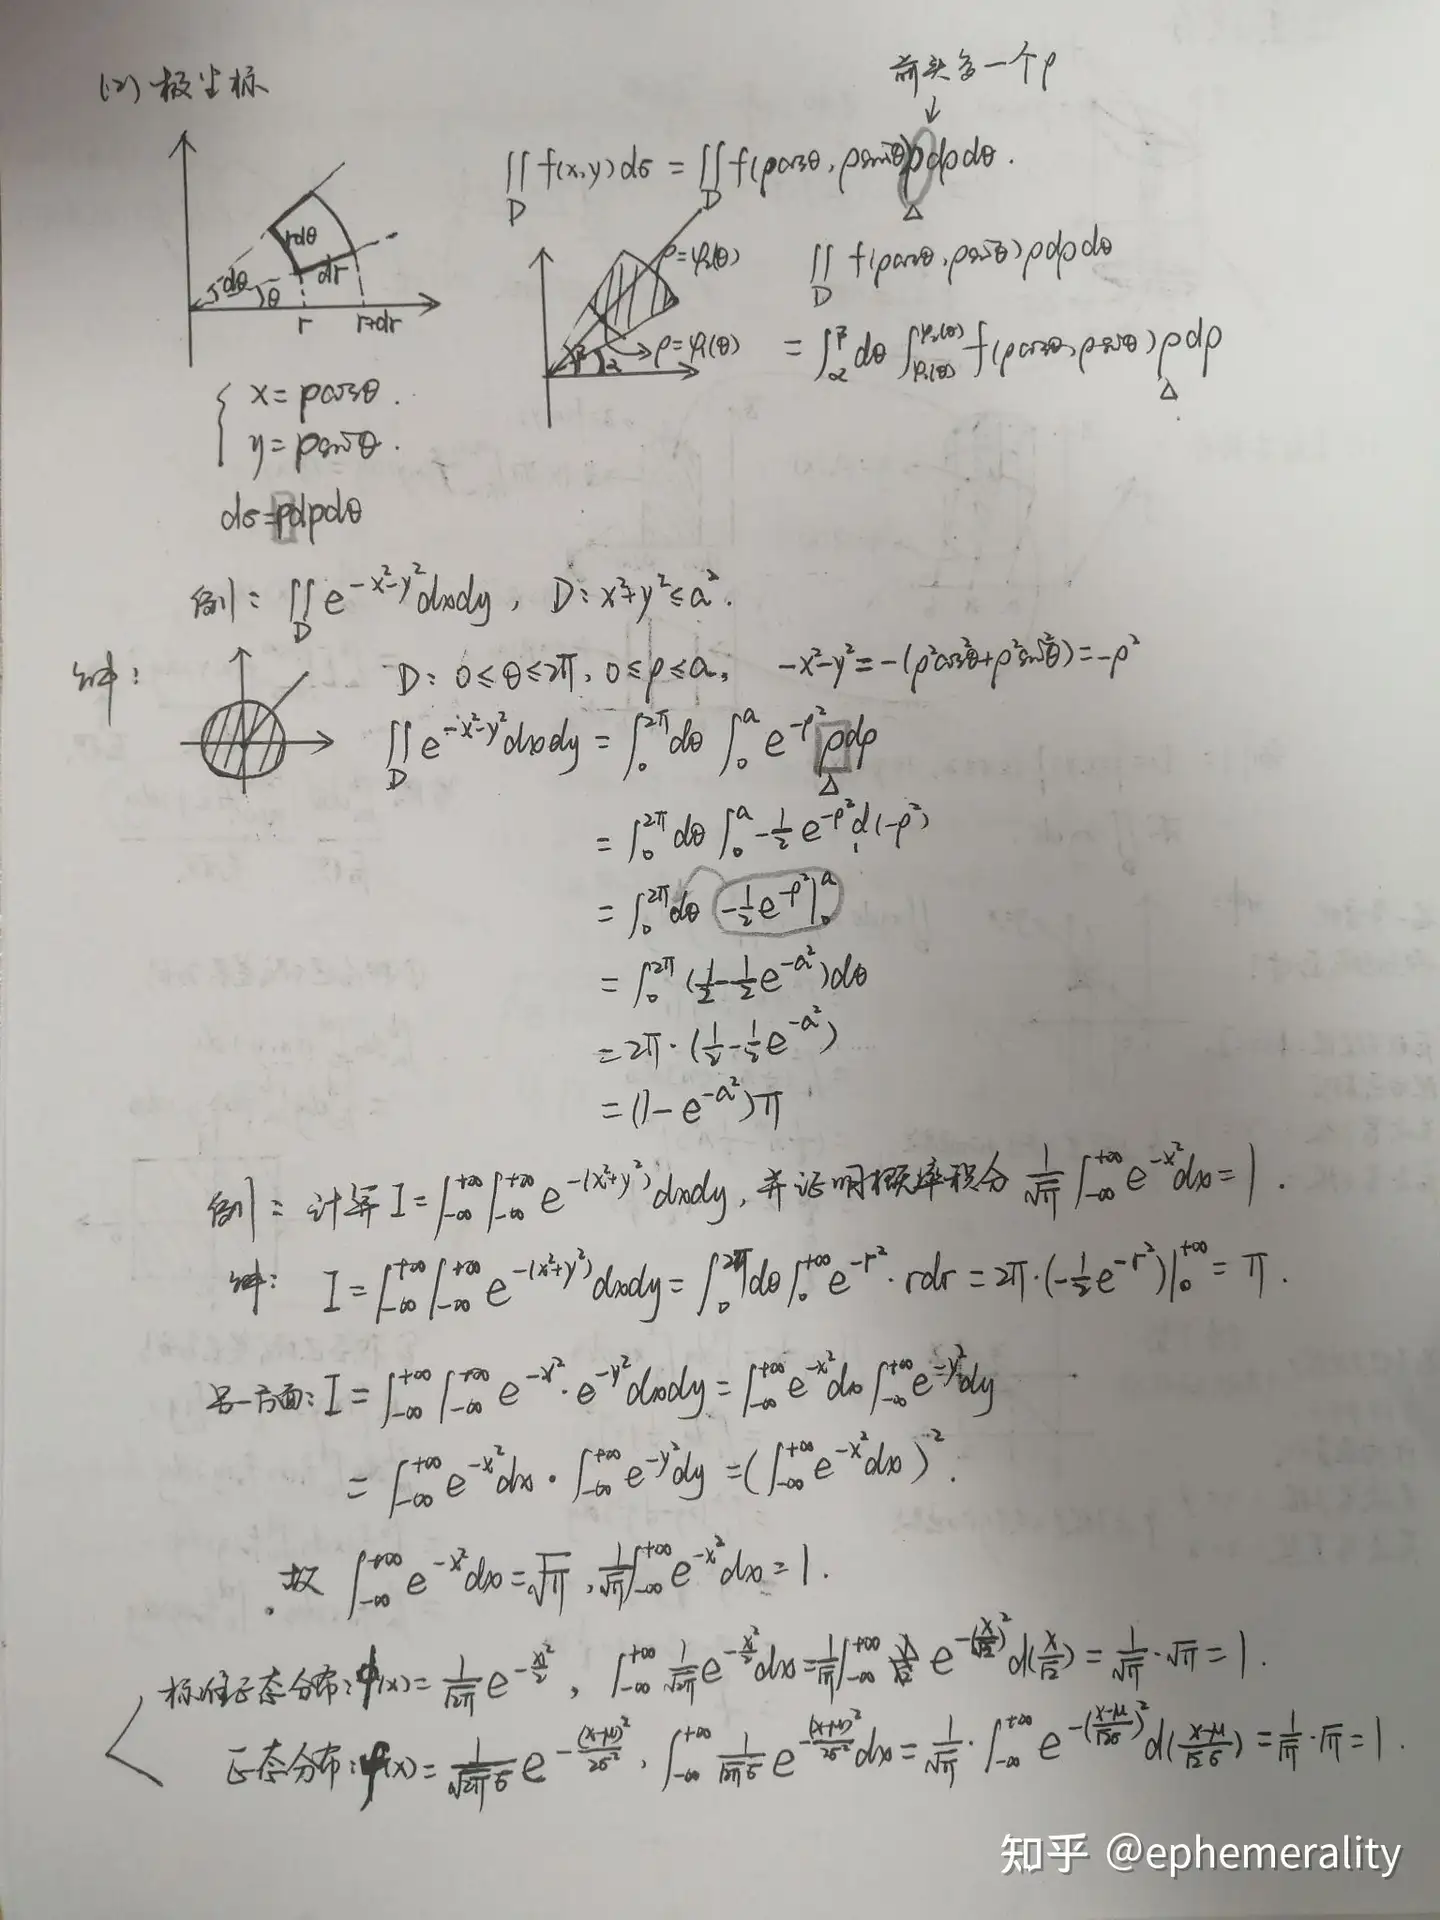 (2) 极坐标
前头多一个ρ
∬_D f(x,y)dσ = ∬_D f(ρcosθ, ρsinθ)ρdρdθ.
△
rdθ
dθ
θ
dr
r
r+dr
ρ=φ₂(θ)
ρ=φ₁(θ)
β
α
∬_D f(ρcosθ, ρsinθ)ρdρdθ
= ∫_α^β dθ ∫_{φ₁(θ)}^{φ₂(θ)} f(ρcosθ, ρsinθ)ρdρ
△
{ x=ρcosθ.
y=ρsinθ.
dσ=ρdρdθ
例: ∬_D e^{-x²-y²}dxdy, D: x²+y²≤a².
解:
D: 0≤θ≤2π, 0≤ρ≤a, -x²-y²=-(ρ²cos²θ+ρ²sin²θ)=-ρ²
∬_D e^{-x²-y²}dxdy = ∫_0^{2π}dθ ∫_0^a e^{-ρ²}ρdρ
△
= ∫_0^{2π}dθ ∫_0^a -1/2 e^{-ρ²}d(-ρ²)
= ∫_0^{2π}dθ -1/2 e^{-ρ²}|_0^a
= ∫_0^{2π}(1/2-1/2 e^{-a²})dθ
= 2π·(1/2-1/2 e^{-a²})
= (1-e^{-a²})π
例: 计算 I=∫_{-∞}^{+∞}∫_{-∞}^{+∞} e^{-(x²+y²)}dxdy, 并证明概率积分 1/√π ∫_{-∞}^{+∞} e^{-x²}dx=1.
解: I=∫_{-∞}^{+∞}∫_{-∞}^{+∞} e^{-(x²+y²)}dxdy=∫_0^{2π}dθ∫_0^{+∞} e^{-r²}·rdr=2π·(-1/2 e^{-r²})|_0^{+∞}=π.
另一方面: I=∫_{-∞}^{+∞}∫_{-∞}^{+∞} e^{-x²}·e^{-y²}dxdy=∫_{-∞}^{+∞}e^{-x²}dx∫_{-∞}^{+∞}e^{-y²}dy
=∫_{-∞}^{+∞}e^{-x²}dx·∫_{-∞}^{+∞}e^{-y²}dy=(∫_{-∞}^{+∞}e^{-x²}dx)².
故 ∫_{-∞}^{+∞}e^{-x²}dx=√π, 1/√π ∫_{-∞}^{+∞}e^{-x²}dx=1.
标准正态分布: φ(x)=1/√2π e^{-x²/2}, ∫_{-∞}^{+∞} 1/√2π e^{-x²/2}dx=1/√π ∫_{-∞}^{+∞} e^{-(x/√2)²}d(x/√2)=1/√π·√π=1.
正态分布: φ(x)=1/(√2π σ) e^{-(x-μ)²/2σ²}, ∫_{-∞}^{+∞} 1/(√2π σ) e^{-(x-μ)²/2σ²}dx=1/√π·∫_{-∞}^{+∞} e^{-((x-μ)/√2σ)²}d((x-μ)/√2σ)=1/√π·√π=1.
知乎 @ephemerality